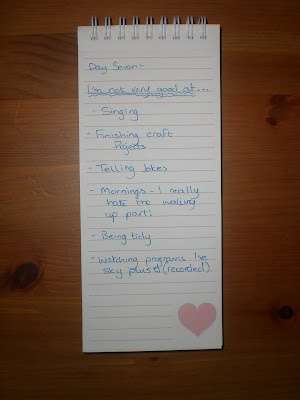 Day Seven -
I'm not very good at...
- Singing
- Finishing craft
Projects
- Telling Jokes
- Mornings - I really
hate the waking
up part!
- Being tidy
- Watching programs I've
sky plus'd (recorded)